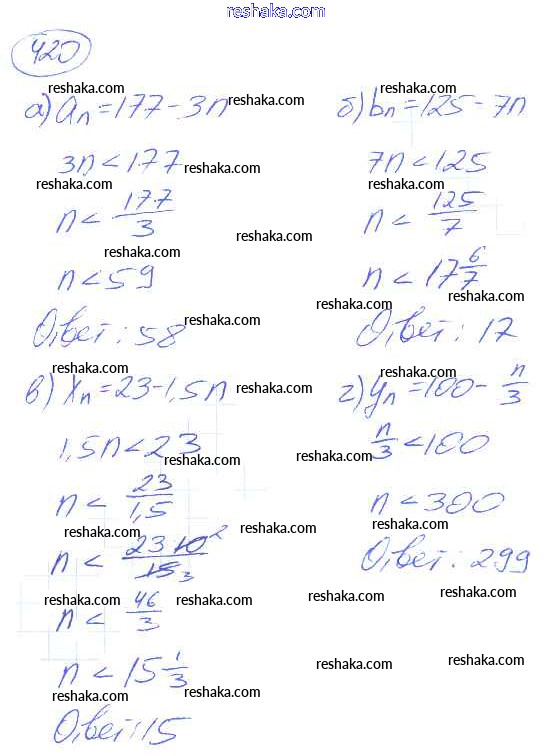 reshaka.com
420
reshaka.com reshaka.com
а) aₙ = 177 - 3n reshaka.com б) bₙ = 125 - 7n
3n < 177 reshaka.com 7n < 125
reshaka.com reshaka.com
n < 177/3 reshaka.com n < 125/7
reshaka.com
n < 59 n < 17 6/7
reshaka.com reshaka.com
Ответ: 58 reshaka.com Ответ: 17
reshaka.com reshaka.com
в) xₙ = 23 - 1,5n reshaka.com г) yₙ = 100 - n/3
1,5n < 23 reshaka.com reshaka.com n/3 < 100
n < 23/1,5 n < 300
reshaka.com reshaka.com reshaka.com
n < 23 10 2/15 3 Ответ: 299
reshaka.com reshaka.com reshaka.com reshaka.com
n < 46/3
n < 15 1/3 reshaka.com reshaka.com
reshaka.com reshaka.com
Ответ: 15